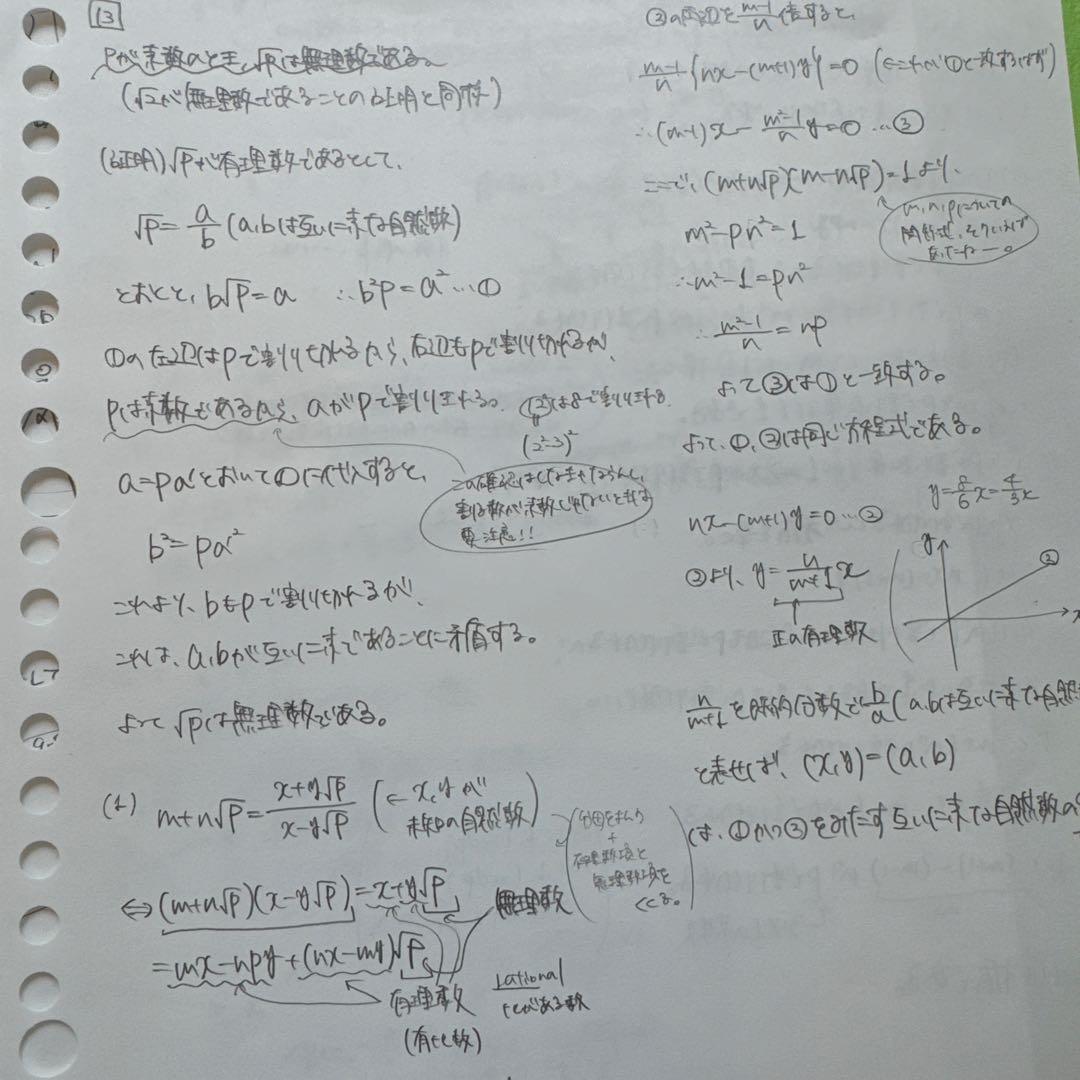 13
Pが素数のとき、√Pは無理数である。
(√2が無理数であることの証明と同様)
(証明) √Pが有理数であるとして、
√P = a/b (a,bは互いに素な自然数)
とおくと、b√P = a ∴b²P = a² …①
①の左辺はPで割り切れるから、右辺もPで割り切れるが、
Pは素数であるから、aがPで割り切れる。
12²は8で割り切れる
(2²·3)²
割る数が素数じゃないときは
要注意!!
a = Pa'とおいて①に代入すると、
b² = Pa'²
これより、bもPで割り切れるが、
これは、a,bが互いに素であることに矛盾する。
よって√Pは無理数である。
(1) m+n√P = (x+y√P)/(x-y√P) (← x,yが
未知の自然数)
分母をはらう
+
有理数項と
無理数項を
くくる。
⇔ (m+n√P)(x-y√P) = x+y√P
無理数
= mx-npy+(nx-my)√P
有理数
(有比数)
rational
比がある数
②の両辺を (m-1)/n 倍すると、
(m-1)/n {nx-(m+1)y} = 0 (←これが①と一致するはず)
∴(m-1)x - (m²-1)/n y = 0 …③
ここで、(m+n√P)(m-n√P) = 1より、
m,n,pについての
関係式
m²-Pn² = 1
∴m²-1 = Pn²
∴ (m²-1)/n = nP
よって③は①と一致する。
よって、①、②は同じ方程式である。
nx-(m+1)y = 0 …②
y = 8/6 x = 4/3 x
②より、y = n/(m+1) x
正の有理数
y
②
x
n/(m+1) を既約分数で b/a (a,bは互いに素な自然
と表せば、(x,y) = (a,b)
は、①かつ②をみたす互いに素な自然数の